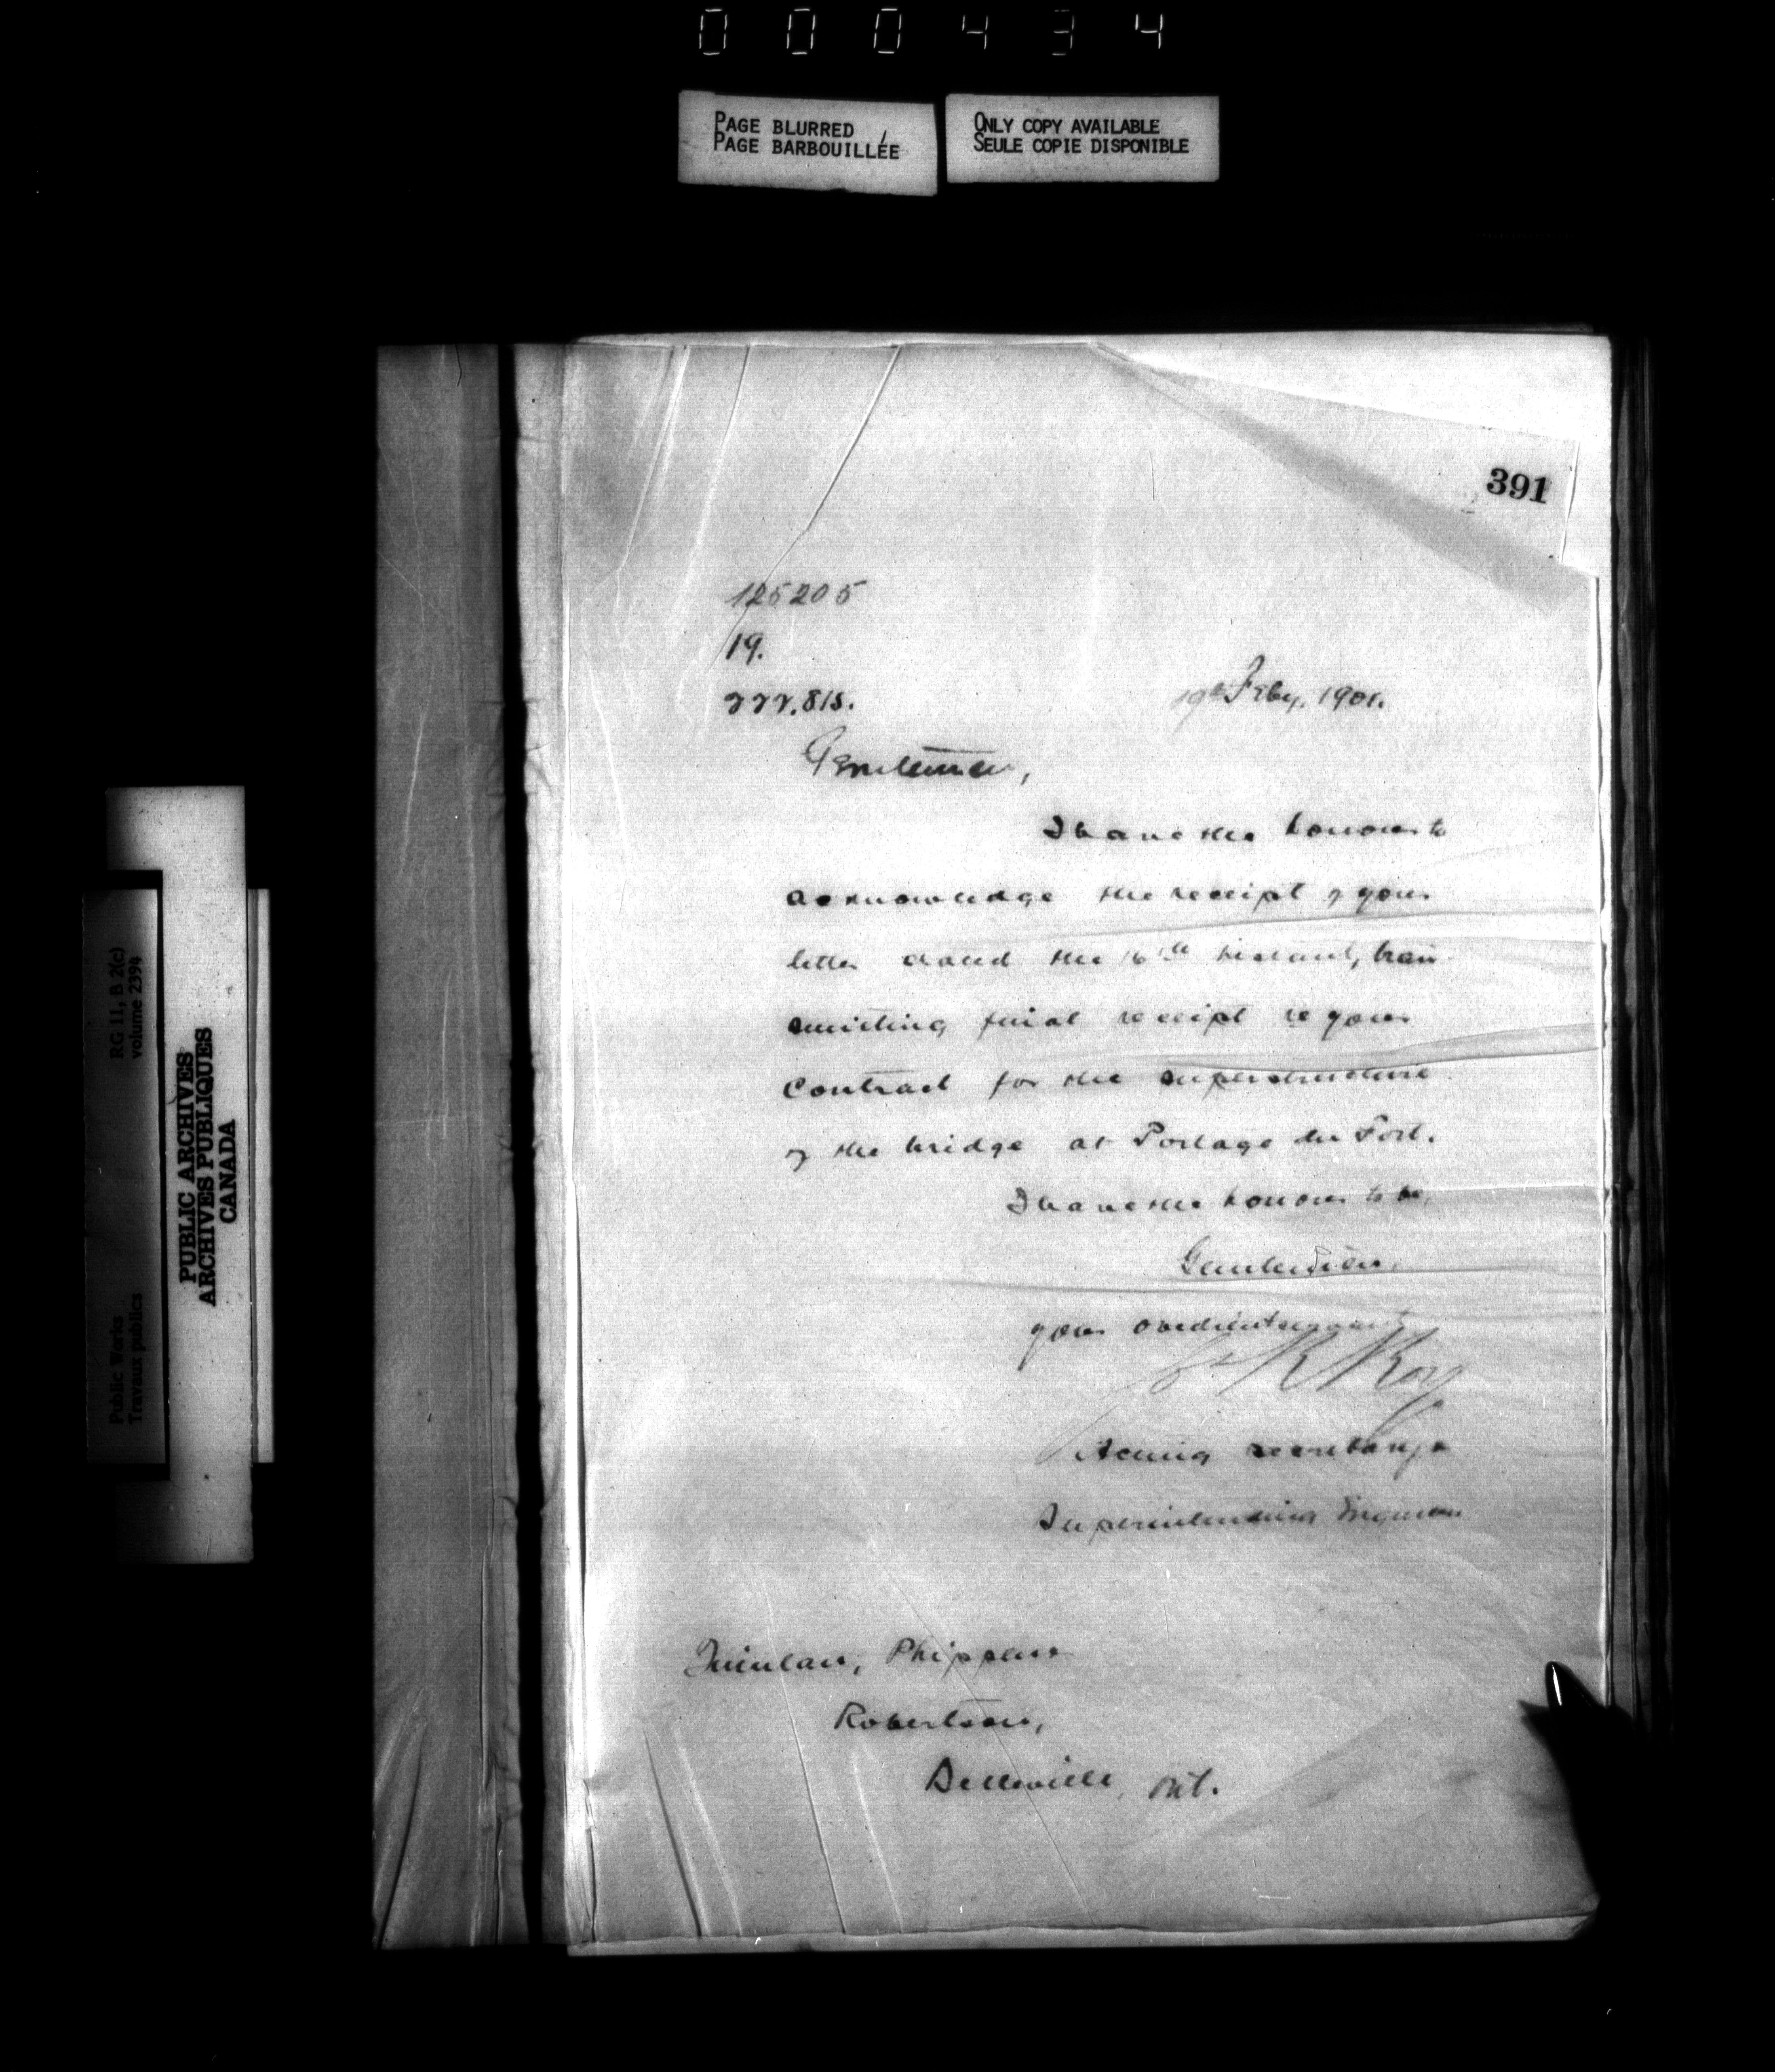 000434
PAGE BLURRED
PAGE BARBOUILLÉE
ONLY COPY AVAILABLE
SEULE COPIE DISPONIBLE
391
125205
19.
19th Feby. 1901.
Gentlemen,
I have the honour to
acknowledge the receipt of your
letter dated the 16th instant, tran
smitting final receipt re your
contract for the superstructure
of the bridge at Portage du Fort.
I have the honour to be,
Gentlemen,
your obedient servant
R Roy
Acting secretary &
Superintending Engineer
Quinlan, Phippen
Robertson,
Belleville, Ont.
PUBLIC ARCHIVES
ARCHIVES PUBLIQUES
CANADA
RG 11, B 2(c)
volume 2394
Public Works
Travaux publics